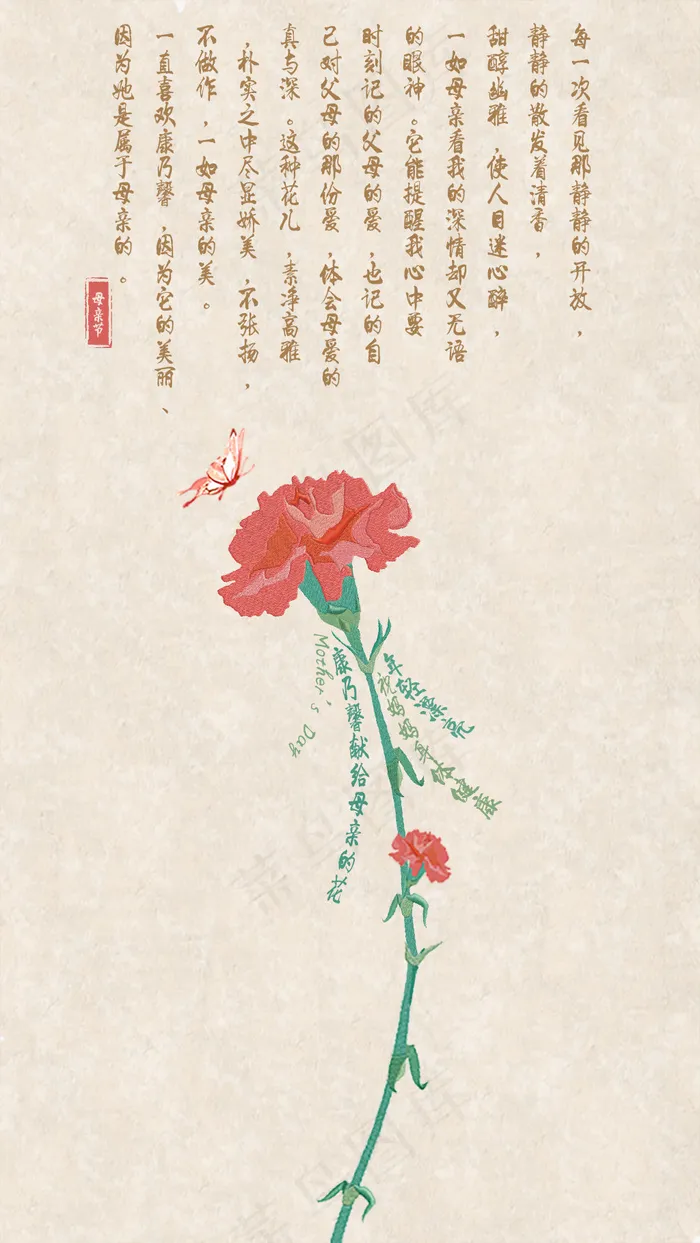 每一次看见那静静的开放，
静静的散发着清香，
甜醇幽雅，使人目迷心醉，
一如母亲看我的深情却又无语
的眼神。它能提醒我心中要
时刻记的父母的爱，也记的自
己对父母的那份爱，体会母爱的
真与深。这种花儿，素净高雅
，朴实之中尽显娇美，不张扬，
不做作，一如母亲的美。
一直喜欢康乃馨，因为它的美丽、
因为她是属于母亲的。
母亲节
年轻漂亮
祝妈妈身体健康
康乃馨献给母亲的花
Mother's Day
菜鸟图库